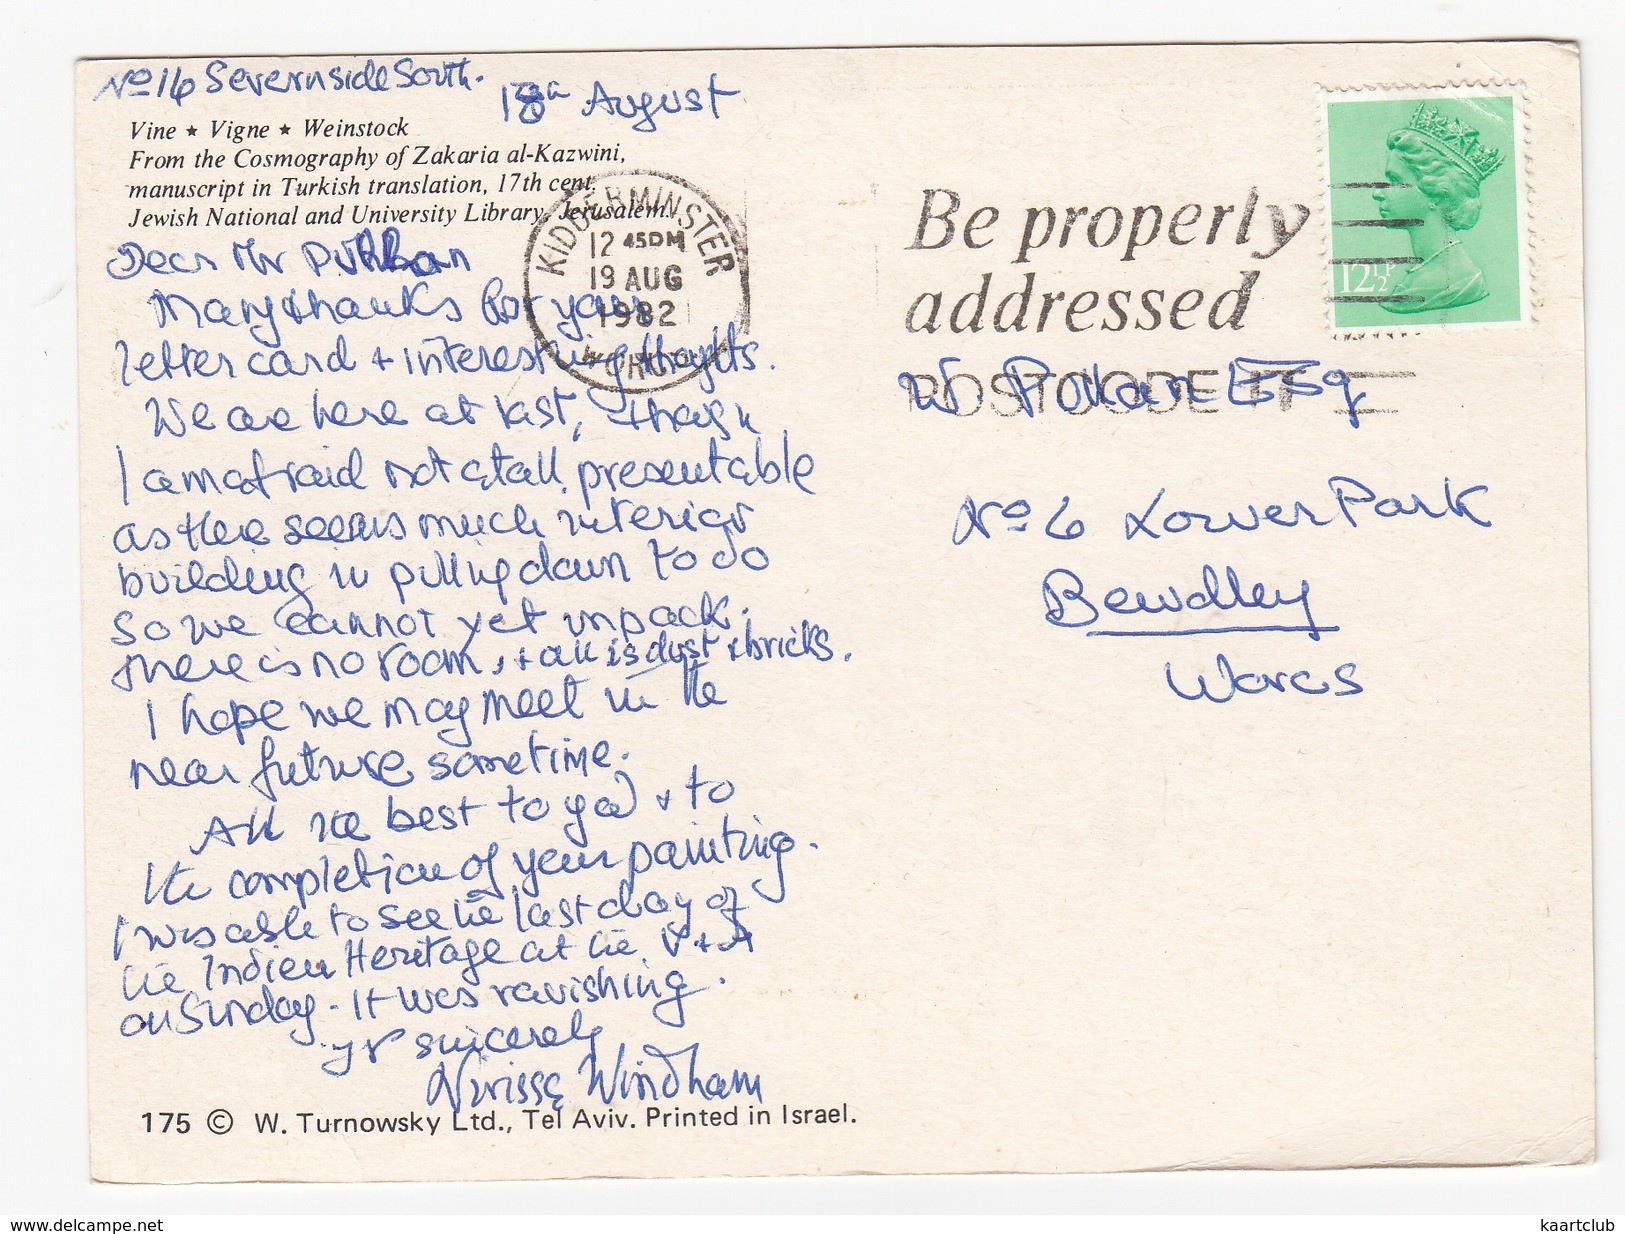 No 16 Severnside South.
18th August
Vine ★ Vigne ★ Weinstock
From the Cosmography of Zakaria al-Kazwini,
manuscript in Turkish translation, 17th cent.
Jewish National and University Library, Jerusalem.
KIDDERMINSTER
12 45PM
19 AUG
1982
WORCS
Be properly
addressed
POSTCODE IT
12½P
Dear Mr
Many thanks for your
letter card + interesting thoughts.
We are here at last, though
I am afraid not at all presentable
as there seems much interior
building in pulling down to do
so we cannot yet unpack.
There is no room, + all is dust + bricks.
I hope we may meet in the
near future sometime.
All the best to you + to
the completion of your painting.
I was able to see the last day of
the Indian Heritage at the V + A
on Sunday - It was ravishing.
yr sincerely
Windham
W. Pullan Esq
No 6 Lower Park
Bewdley
Worcs
175 © W. Turnowsky Ltd., Tel Aviv. Printed in Israel.
www.delcampe.net
kaartclub